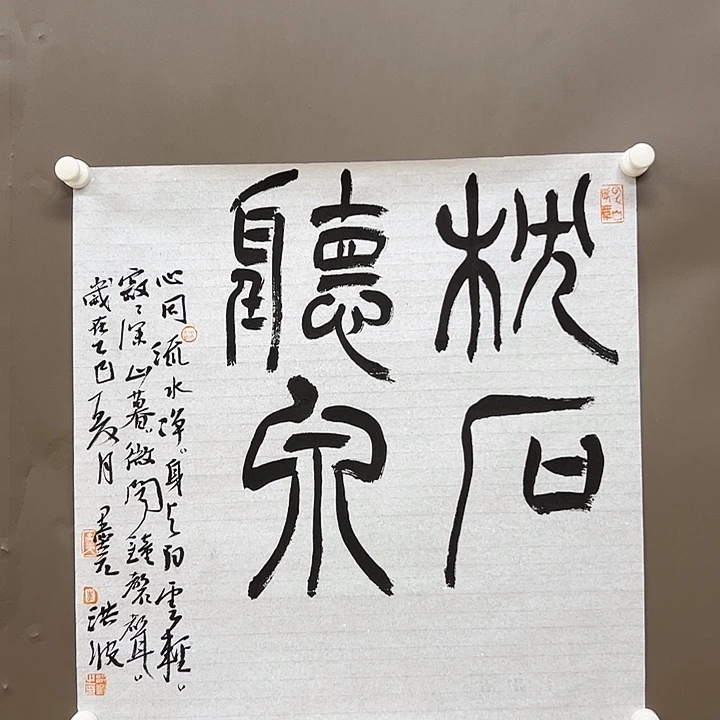 枕石
聽泉
心同流水淨。身与白雲輕。
寂〻深山暮。微聞鐘磬聲。
歲在乙巳夏月 洪波